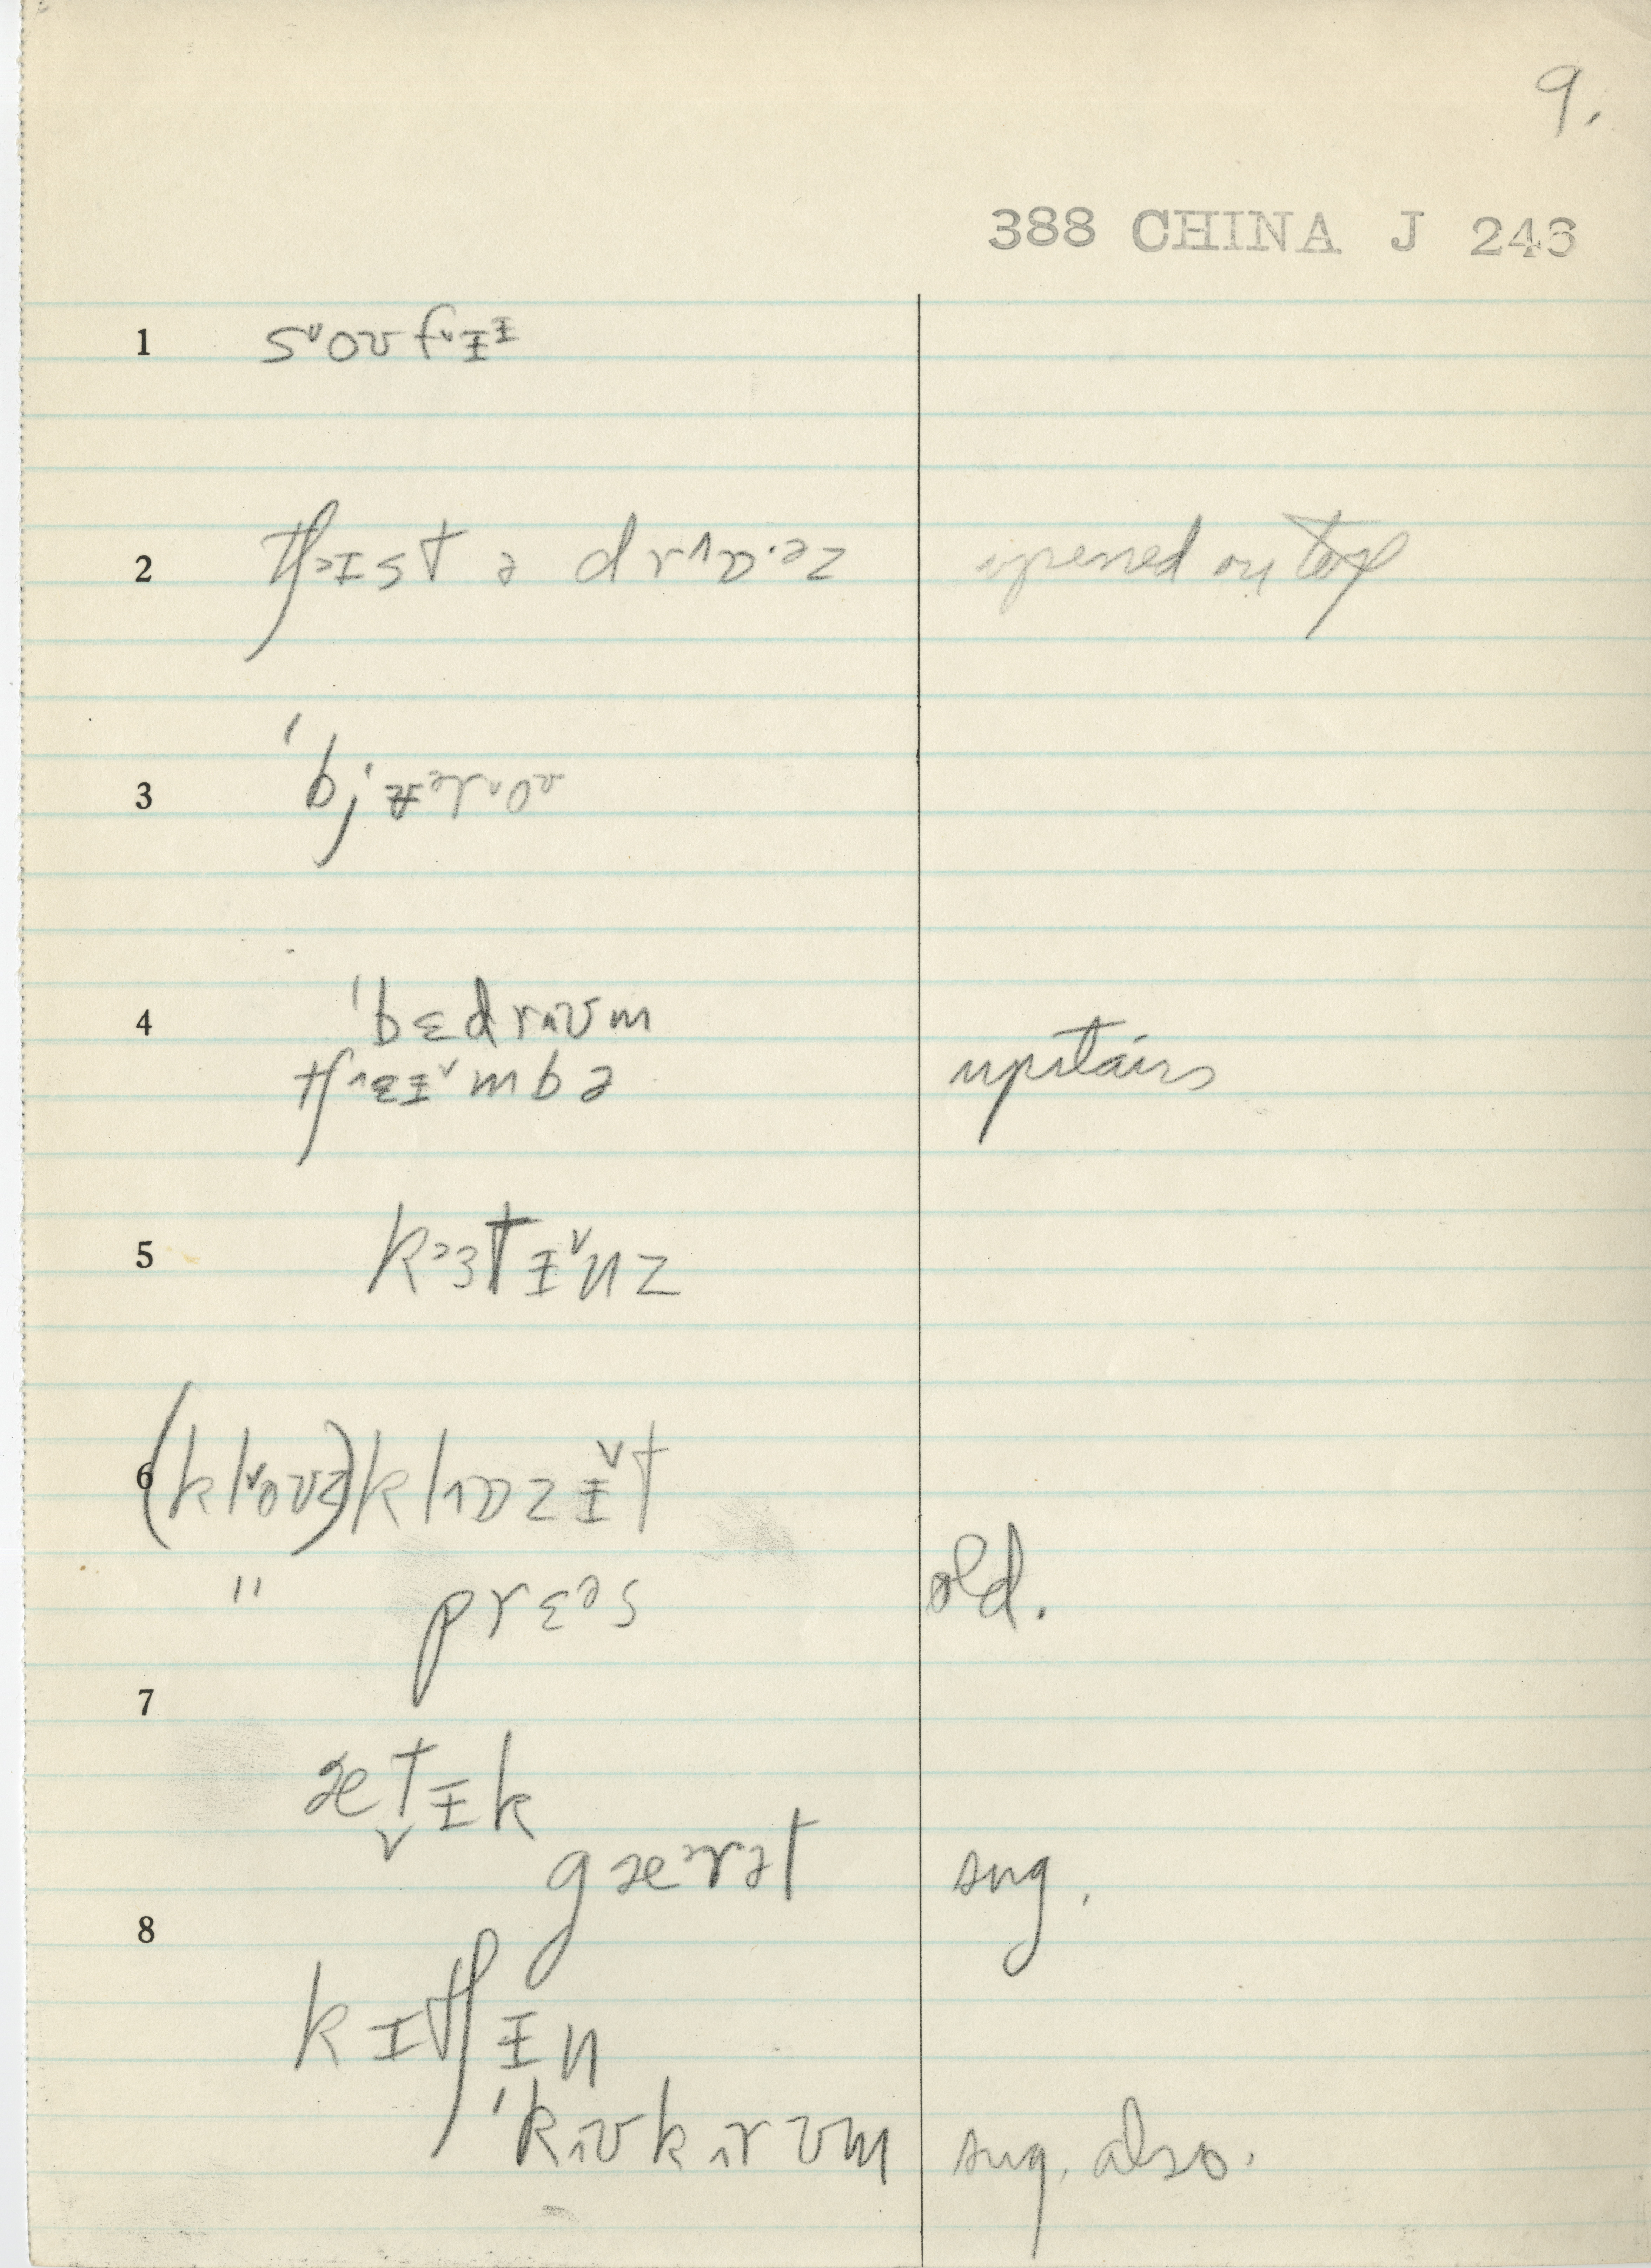 9.
388 CHINA J 246
1 s˅oʊf˅ɨᶤ
2 tʃ˃ɪst ə dr^ɒ˅·ᵊz opened on top
3 'bj'ʉᵊr˅oᶷ
4 'bɛdr^ʊm
tʃ^ɛɨ˅mbə upstairs
5 k˃ɜtɨ˅nz
6 (kl˅oʊz) kl^ɒzɨ˅t
" prɛᵊs old.
7
ætɨk
gæ˃rət sug.
8
kɪtʃɨn
'k^ʊk^rʊm sug. also.